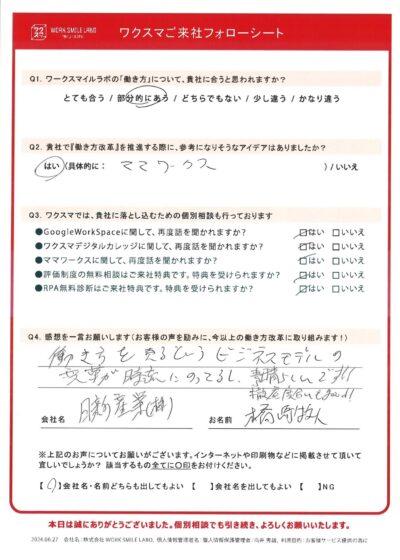 WORK SMILE LABO
ワクスマご来社フォローシート
Q1. ワークスマイルラボの「働き方」について、貴社に合うと思われますか?
とても合う / 部分的にあう / どちらでもない / 少し違う / かなり違う
Q2. 貴社で『働き方改革』を推進する際に、参考になりそうなアイデアはありましたか?
はい (具体的に: ママワークス ) / いいえ
Q3. ワクスマでは、貴社に落とし込むための個別相談も行っております
●GoogleWorkSpaceに関して、再度話を聞かれますか? □はい □いいえ
●ワクスマデジタルカレッジに関して、再度話を聞かれますか? □はい □いいえ
●ママワークスに関して、再度話を聞かれますか? □はい □いいえ
●評価制度の無料相談はご来社特典です。特典を受けられますか? □はい □いいえ
●RPA無料診断はご来社特典です。特典を受けられますか? □はい □いいえ
Q4. 感想を一言お願いします(お客様の声を励みに、今以上の働き方改革に取り組みます!)
働き方を売るというビジネスモデルの
時流にのってるし、素晴らしいです!!
会社名 日新産業(株) お名前
※上記のお声についてお願いがございます。インターネットや印刷物などに掲載させて頂いて
宜しいでしょうか? 該当するもの全てに〇印をお付けください。
【 〇 】会社名・名前どちらも出してもよい 【 】会社名のみ出してもよい 【 】NG
本日は誠にありがとうございました。個別相談でも引き続き、よろしくお願いいたします。
2024.06.27 会社名:株式会社 WORK SMILE LABO、個人情報管理者名 個人情報保護管理者:石井 秀雄、利用目的:お客様サービス提供の為に